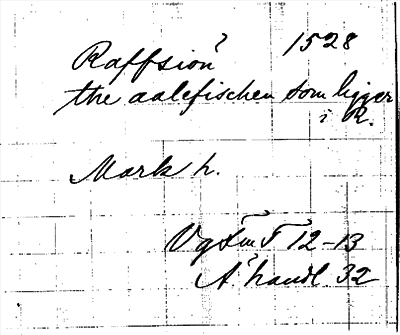 Raffsion? 1528
the aalefischen som ligger
i R.
Mark h.
12-13
handl. 32